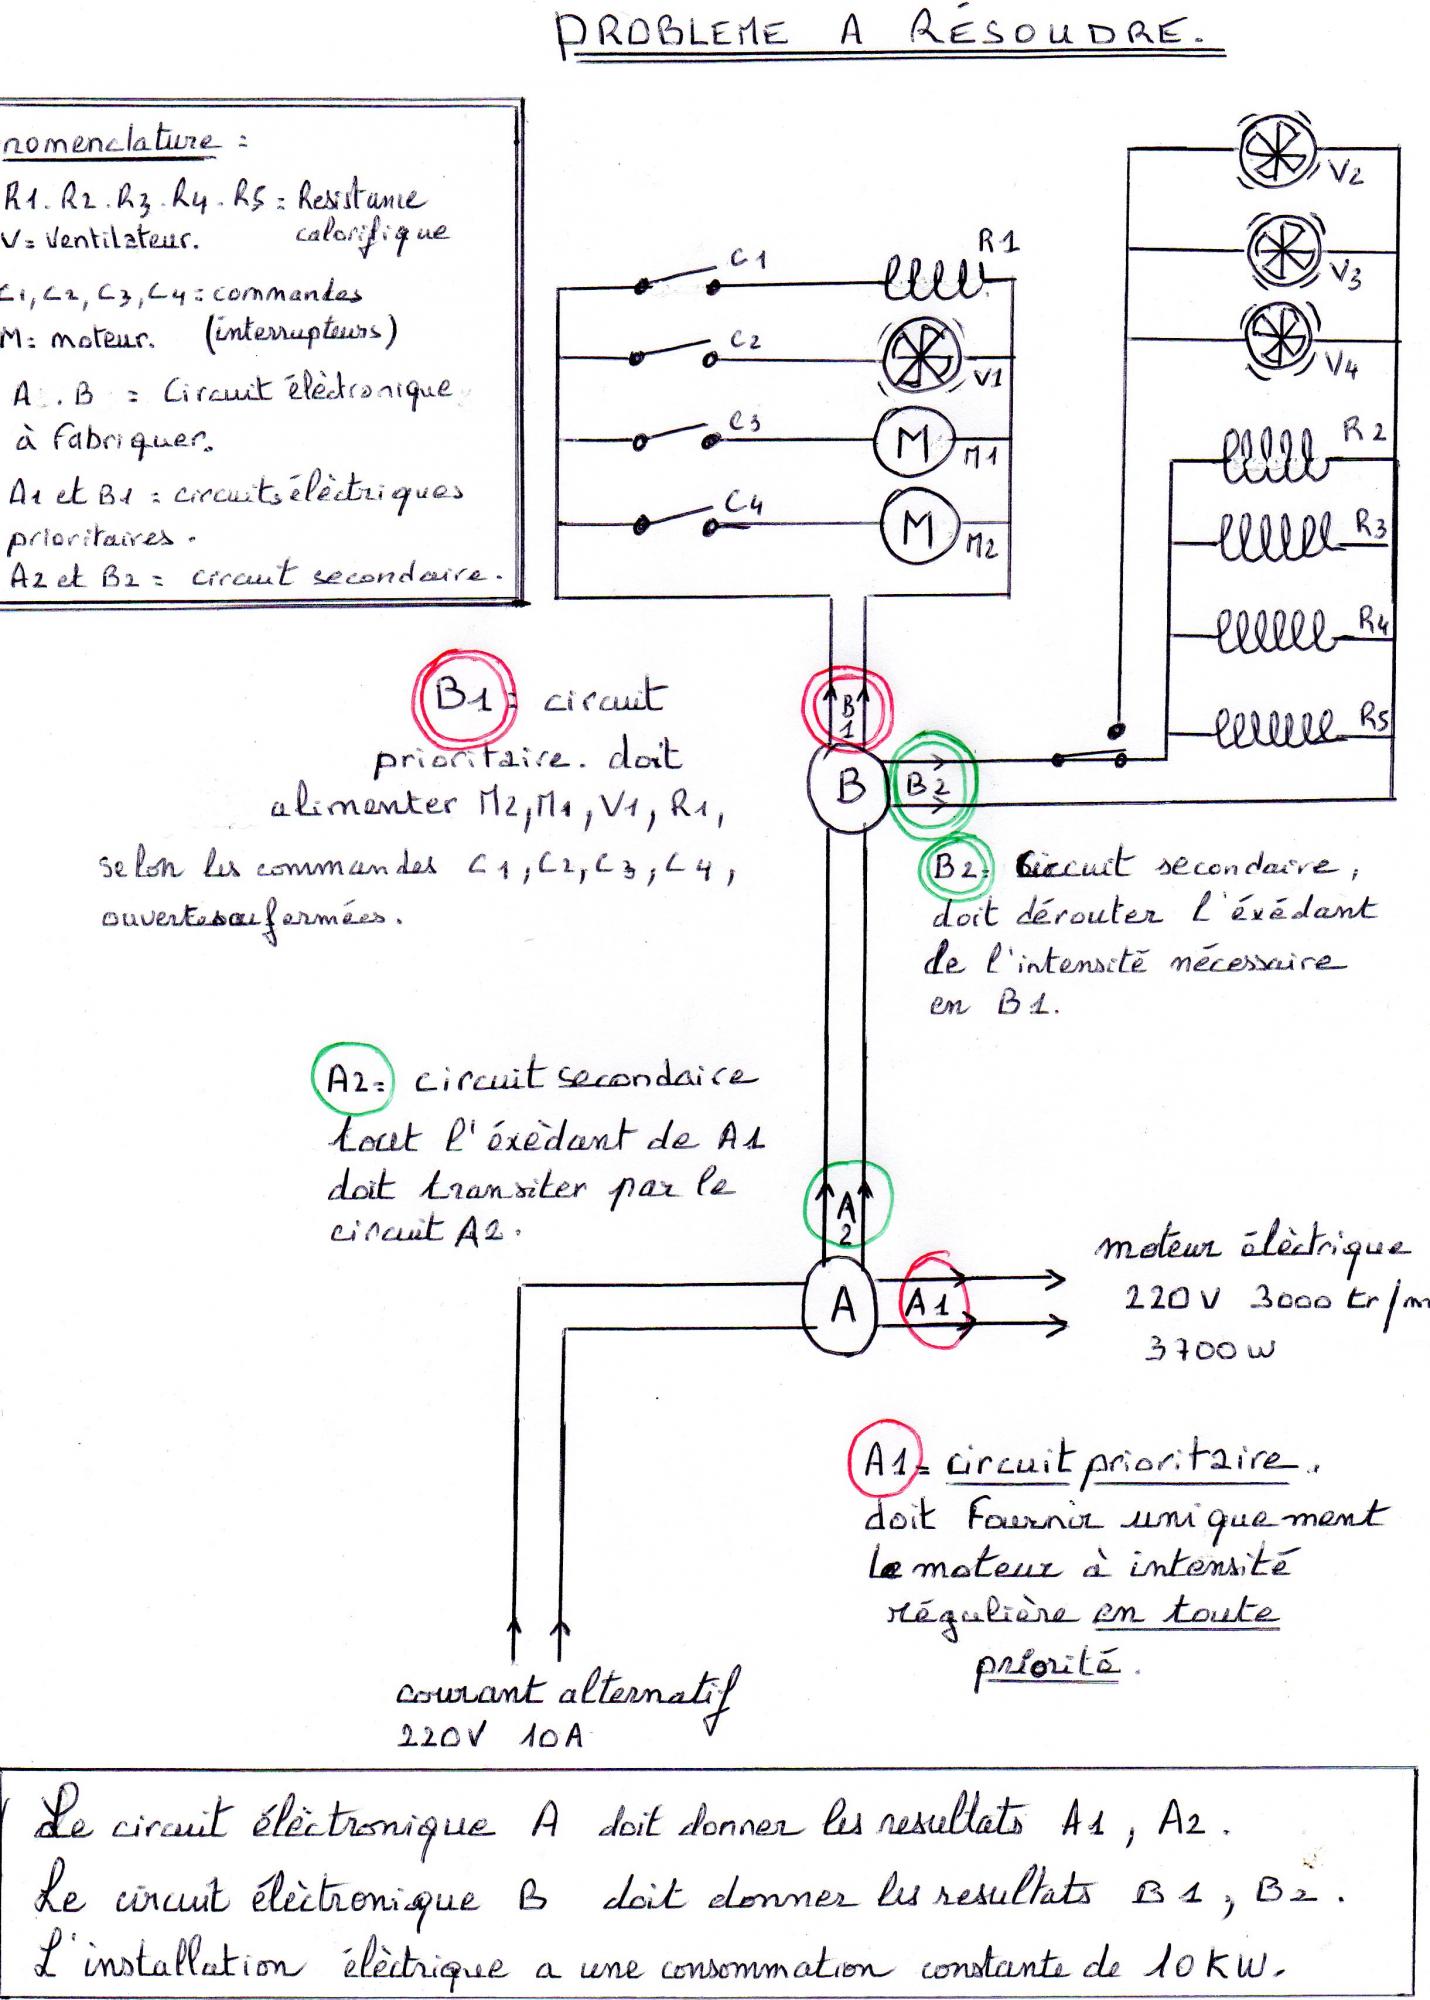 PROBLEME A RÉSOUDRE.
nomenclature :
R1. R2. R3. R4. R5 = Resistance
calorifique
V = Ventilateur.
C1, C2, C3, C4 = commandes
(interrupteurs)
M = moteur.
A . B = Circuit élèctronique
à Fabriquer.
A1 et B1 = circuits élèctriques
prioritaires.
A2 et B2 = circuit secondaire.
C1
R1
C2
V1
C3
M
M1
C4
M
M2
V2
V3
V4
R2
R3
R4
R5
B1 = circuit
prioritaire. doit
alimenter M2, M1, V1, R1,
selon les commandes C1, C2, C3, C4,
ouvertes ou fermées.
B
1
B
B2
B2 = Circuit secondaire,
doit dérouter l'éxédant
de l'intensité nécessaire
en B1.
A2 = circuit secondaire
tout l'éxèdant de A1
doit transiter par le
circuit A2.
A
2
A
A1
moteur élèctrique
220V 3000 tr/m
3700 W
A1 = circuit prioritaire.
doit Fournir uniquement
le moteur à intensité
régulière en toute
priorité.
courant alternatif
220V 10A
Le circuit élèctronique A doit donner les resultats A1, A2.
Le circuit élèctronique B doit donner les resultats B1, B2.
L'installation élèctrique a une consommation constante de 10KW.